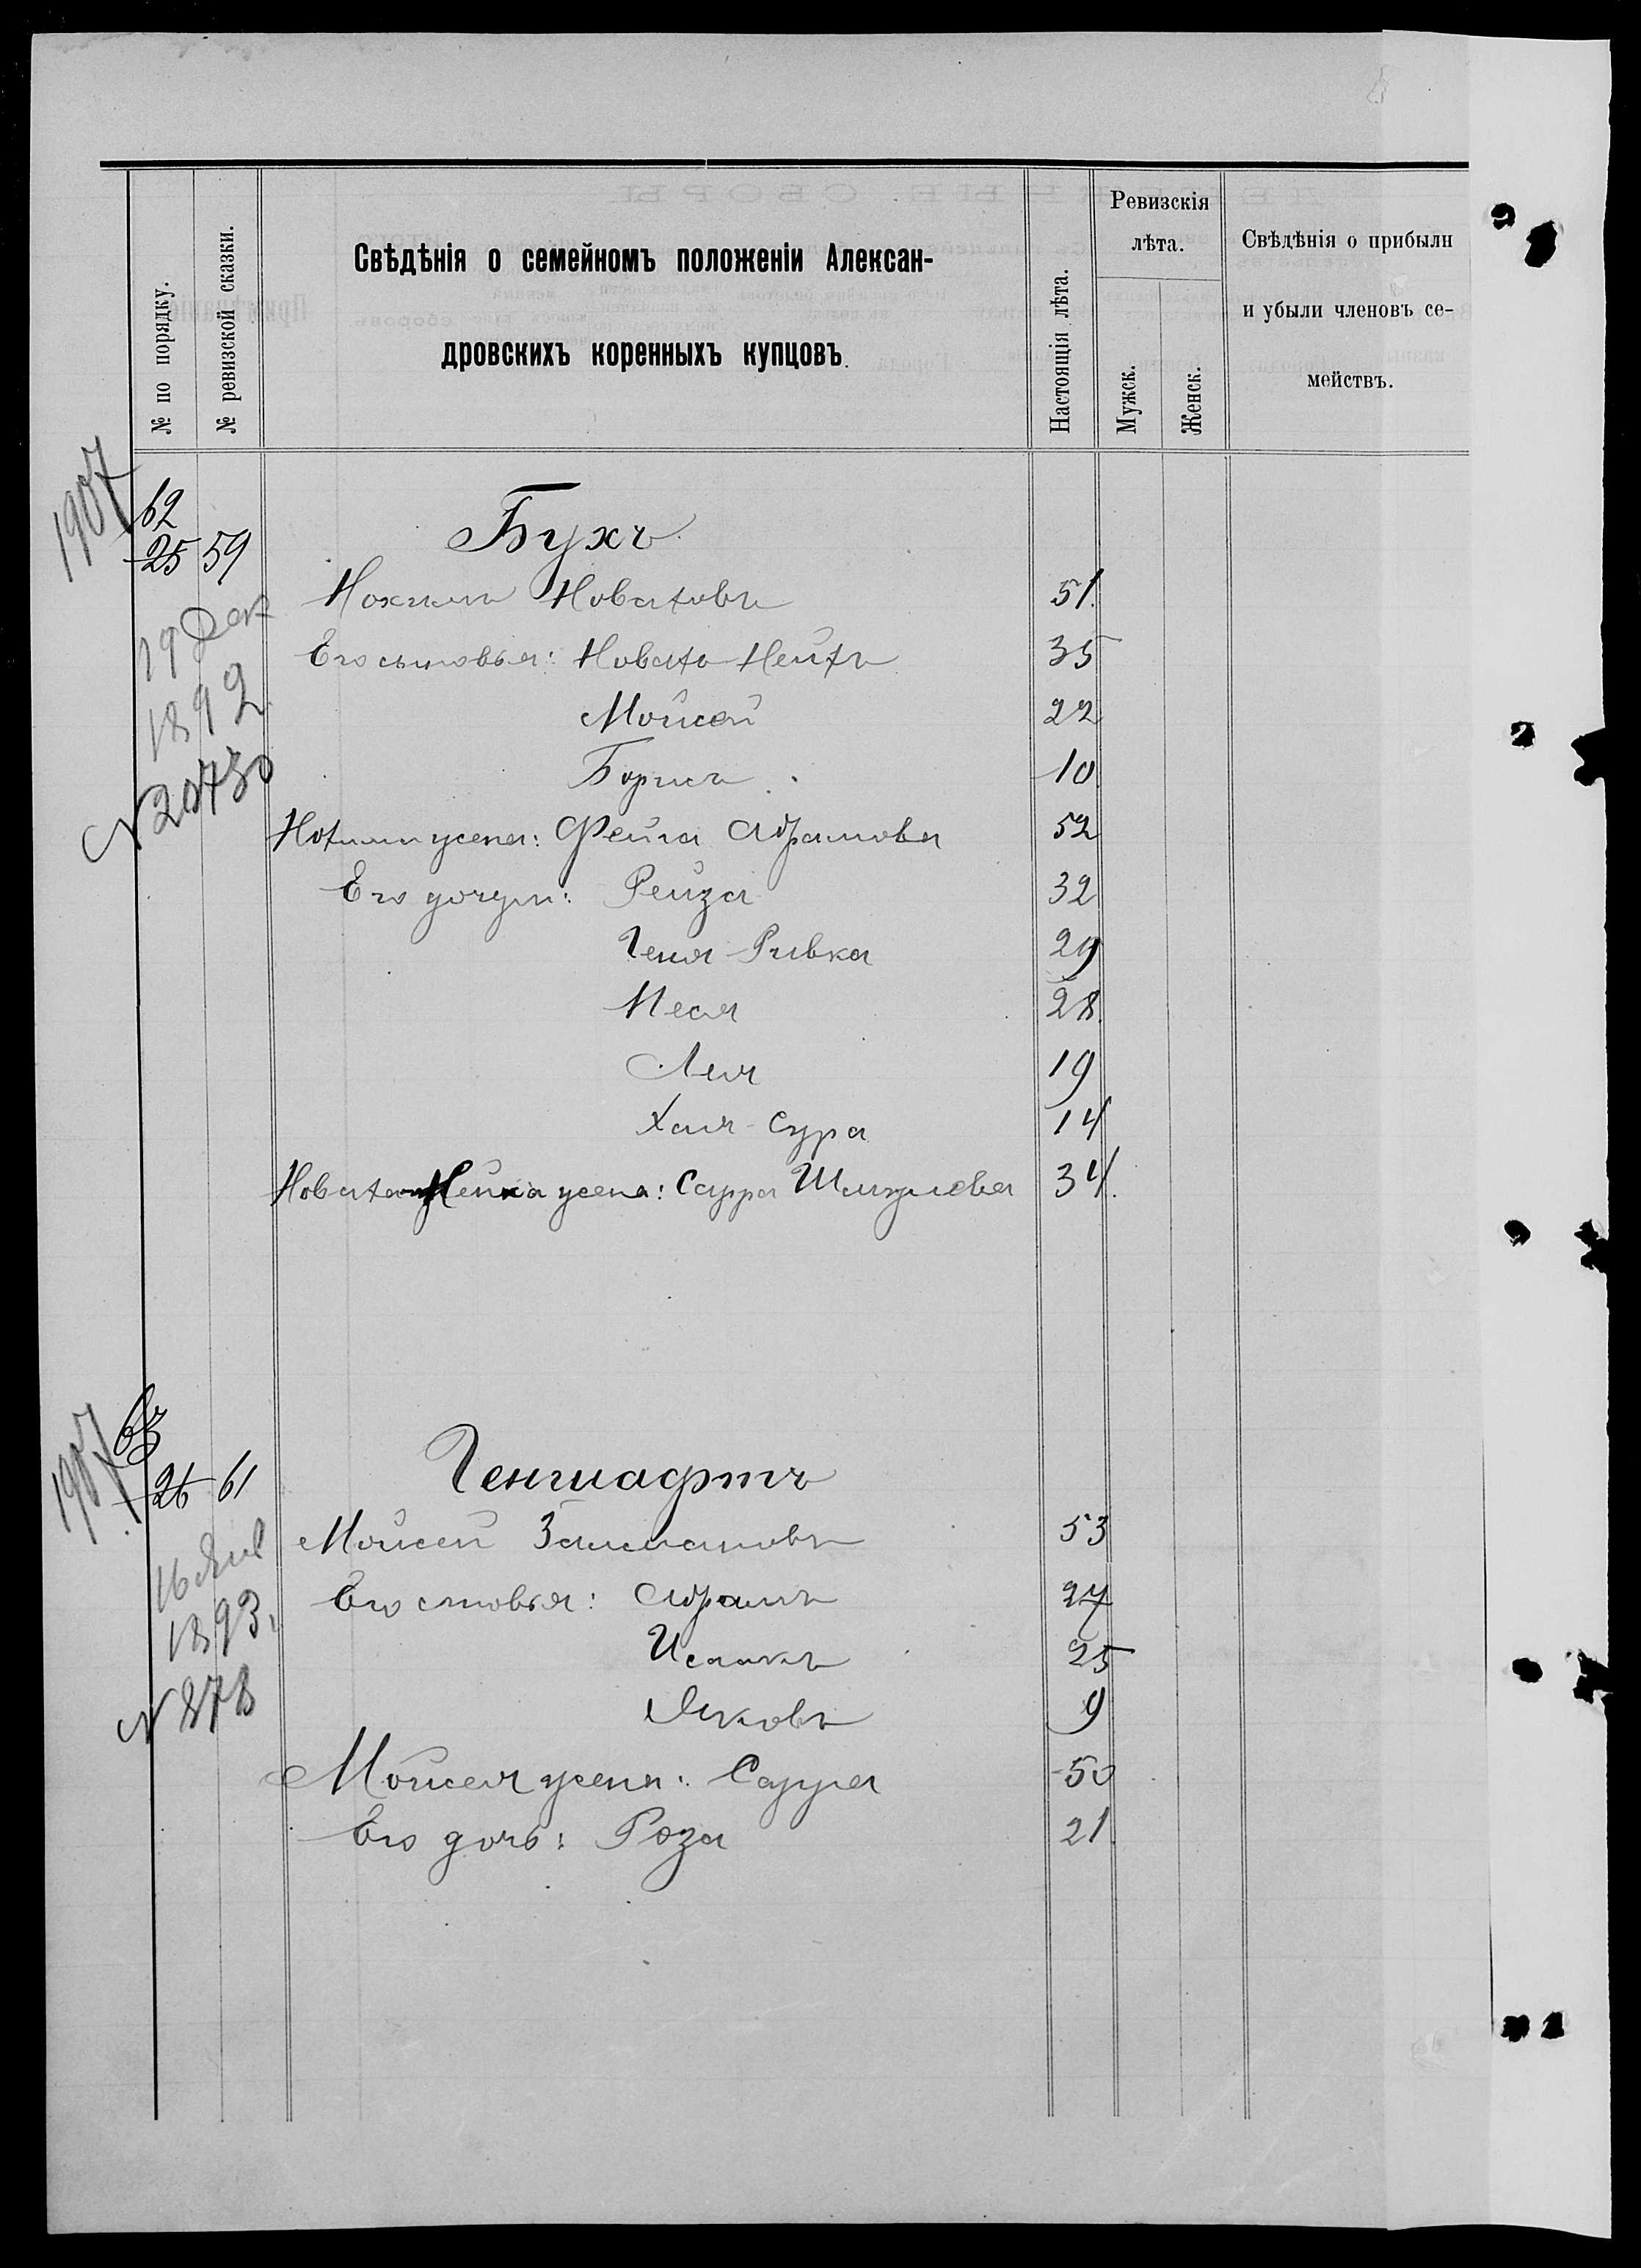 № по порядку.
№ ревизской сказки.
Свѣдѣнія о семейномъ положеніи Алексан-
дровскихъ коренныхъ купцовъ.
Настоящія лѣта.
Ревизскія
лѣта.
Мужск.
Женск.
Свѣдѣнія о прибыли
и убыли членовъ се-
мействъ.
1907
62
25 59
Бухъ
Нохимъ Новаховъ 51.
19 Дек
Его сыновья: Новахъ 35
1892
Мойсей 22
№ 20730
Борисъ 10
Нохима жена: Фейга Абрамова 52
Его дочери: Рейза 32
Геня-Ривка 29
Неся 28.
Лея 19
Хая-Сура 14
жена: Сарра 34.
1907
63
26 61
Генгшафтъ
Мойсей Залмановъ 53
16 Янв
Его сыновья: Абрамъ 27
1893.
Исаакъ 25
№ 878
Яковъ 9
Мойсея жена: Сарра 50
Его дочь: Роза 21.